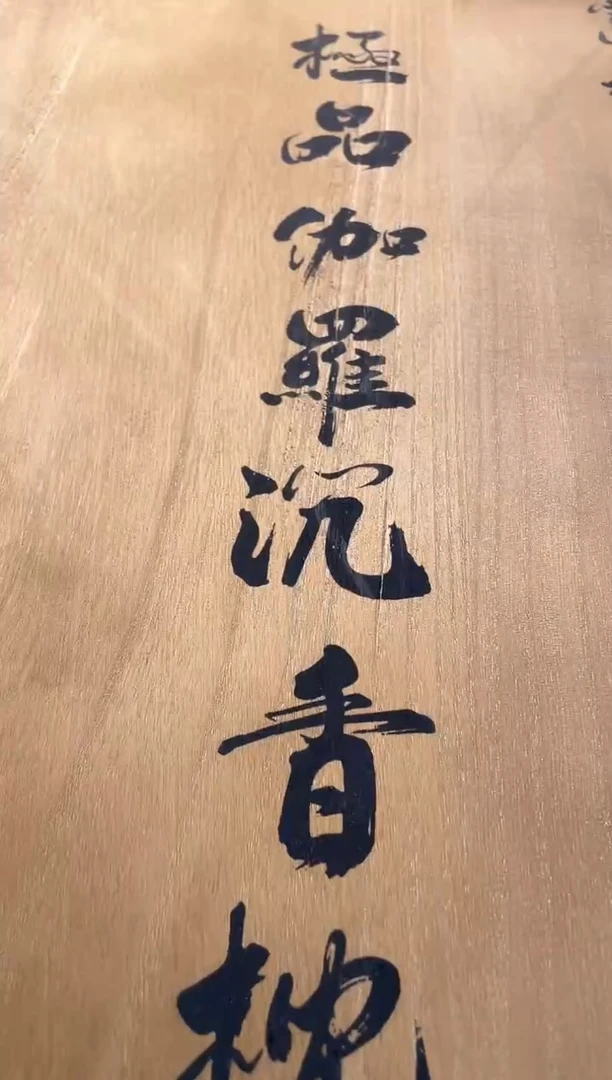 極品伽羅沉香枕